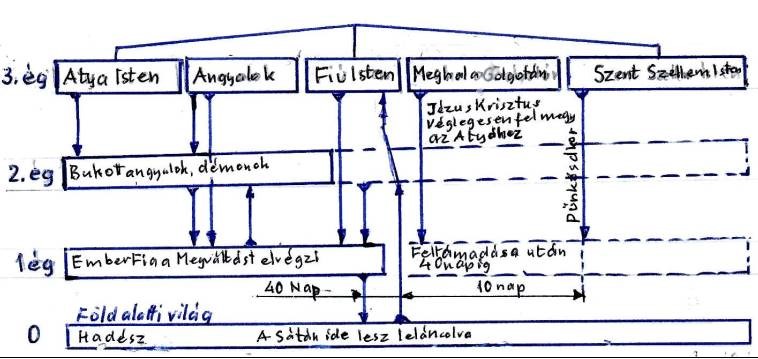 3. ég
Atya Isten
Angyalok
Fiú Isten
Meghal a Golgotán
Szent Szellem Isten
Jézus Krisztus
véglegesen felmegy
az Atyához
Pünkösdkor
2. ég
Bukott angyalok, démonok
1 ég
Ember Fia a Megváltást elvégzi
Feltámadása után
40 napig
40 Nap
10 nap
Föld alatti világ
0
Hadész
A Sátán ide lesz leláncolva